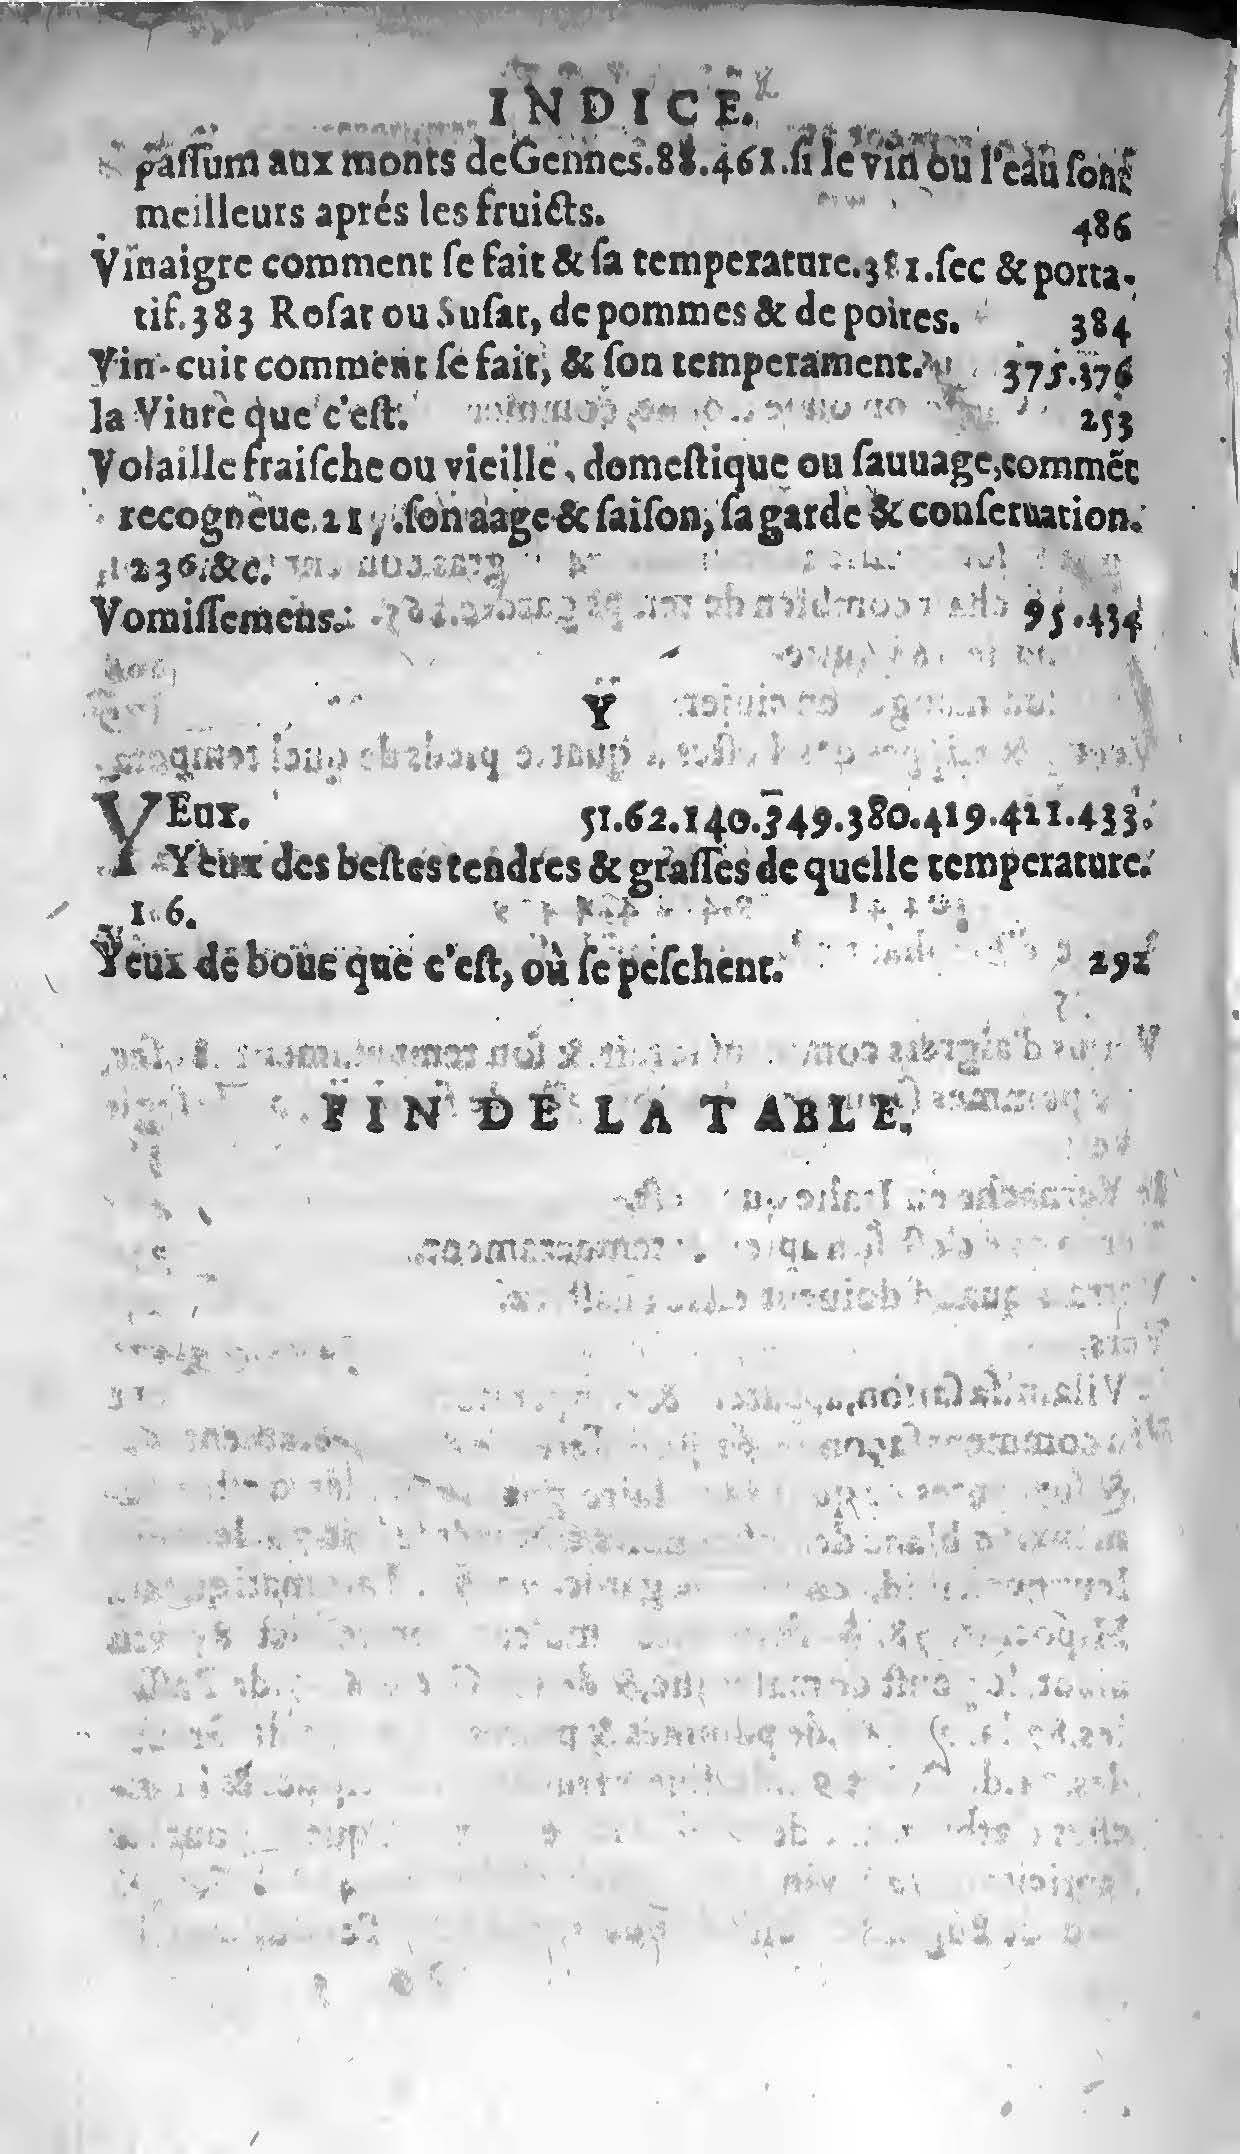 INDICE.
paſſum aux monts de Gennes.88.461.ſi le vin ou l'eau ſont
meilleurs aprés les fruicts. 486
Vinaigre comment ſe fait & ſa temperature.381.ſec & porta-
tif.383 Roſat ou Suſat, de pommes & de poires. 384
Vin cuit comment ſe fait, & ſon temperament. 375.376
la Viure que c'eſt. 253
Volaille fraiſche ou vieille, domeſtique ou ſauuage, commẽt
recogneue. ſon aage & ſaiſon, ſa garde & conſeruation.
236.&c.
Vomiſſemens. 95.434
Y
YEux. 51.62.140.349.380.419.421.433.
Yeux des beſtes tendres & graſſes de quelle temperature.
106.
Yeux de bouc que c'eſt, où ſe peſchent. 292
FIN DE LA TABLE.